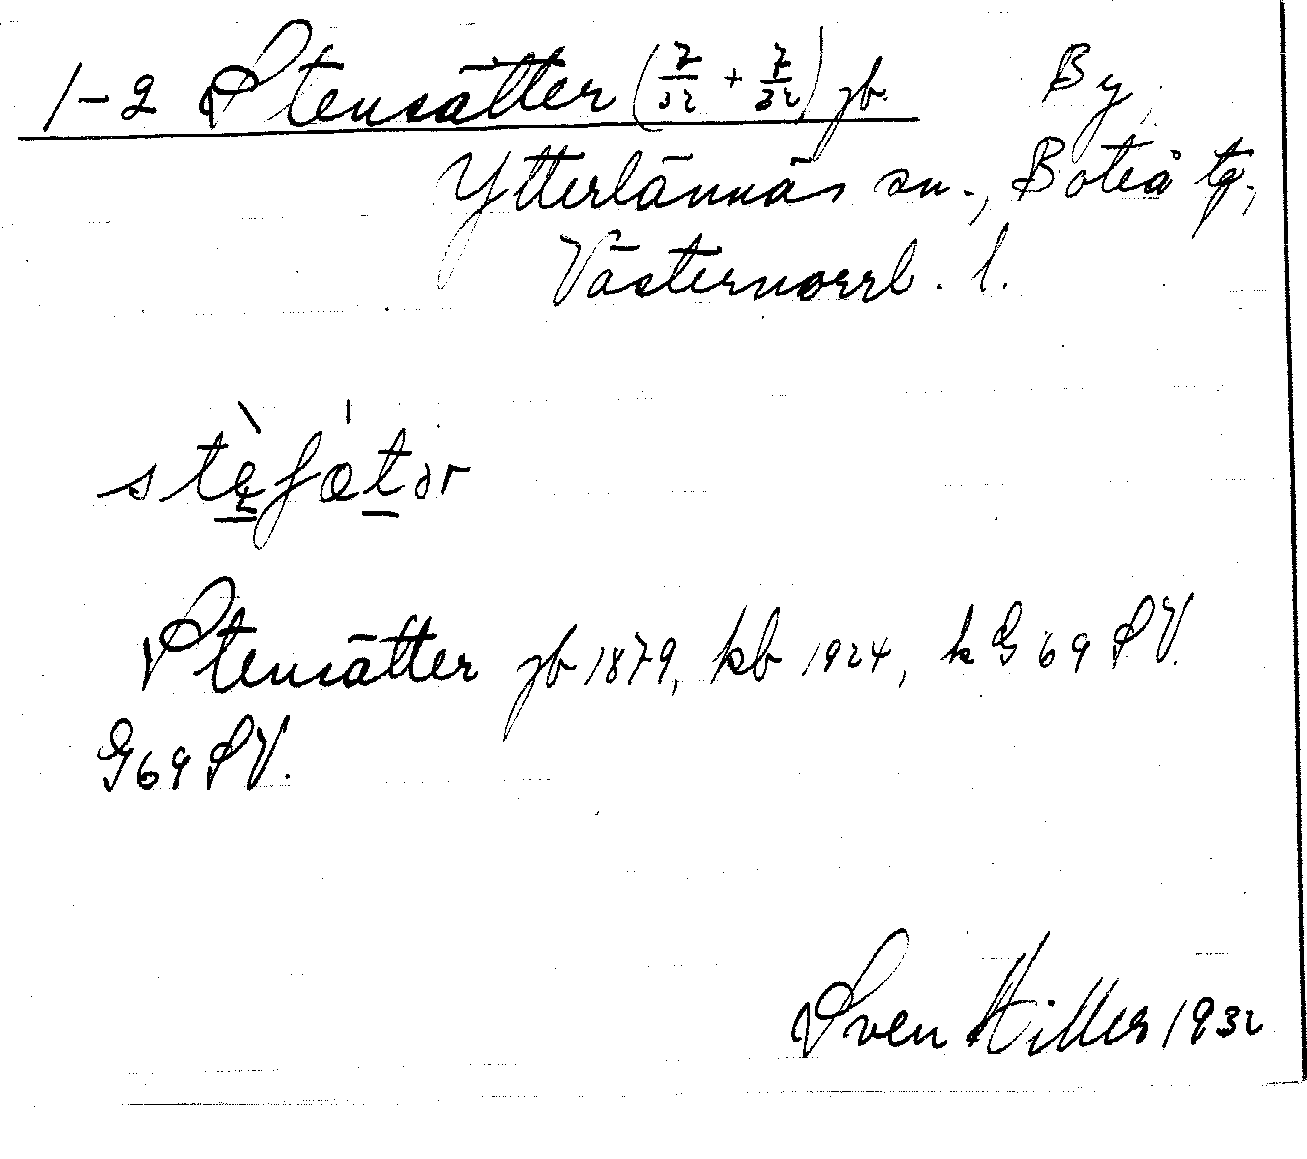 1-2 Stensätter (7/32 + 7/32) jb. By,
Ytterlännäs sn., Boteå tg.,
Västernorrl. l.
Stensätter jb 1879, kb 1924, k G 69 SV.
G 69 SV.
Sven Hiller 1932